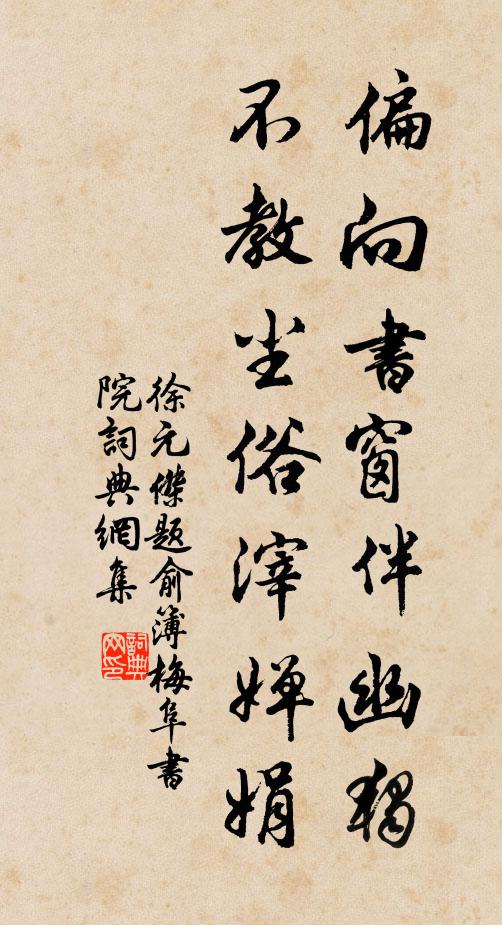 偏向書窗伴幽獨
不教尘俗滓嬋娟
徐元傑題俞簿梅阜書
院詞典網集
詞典网印